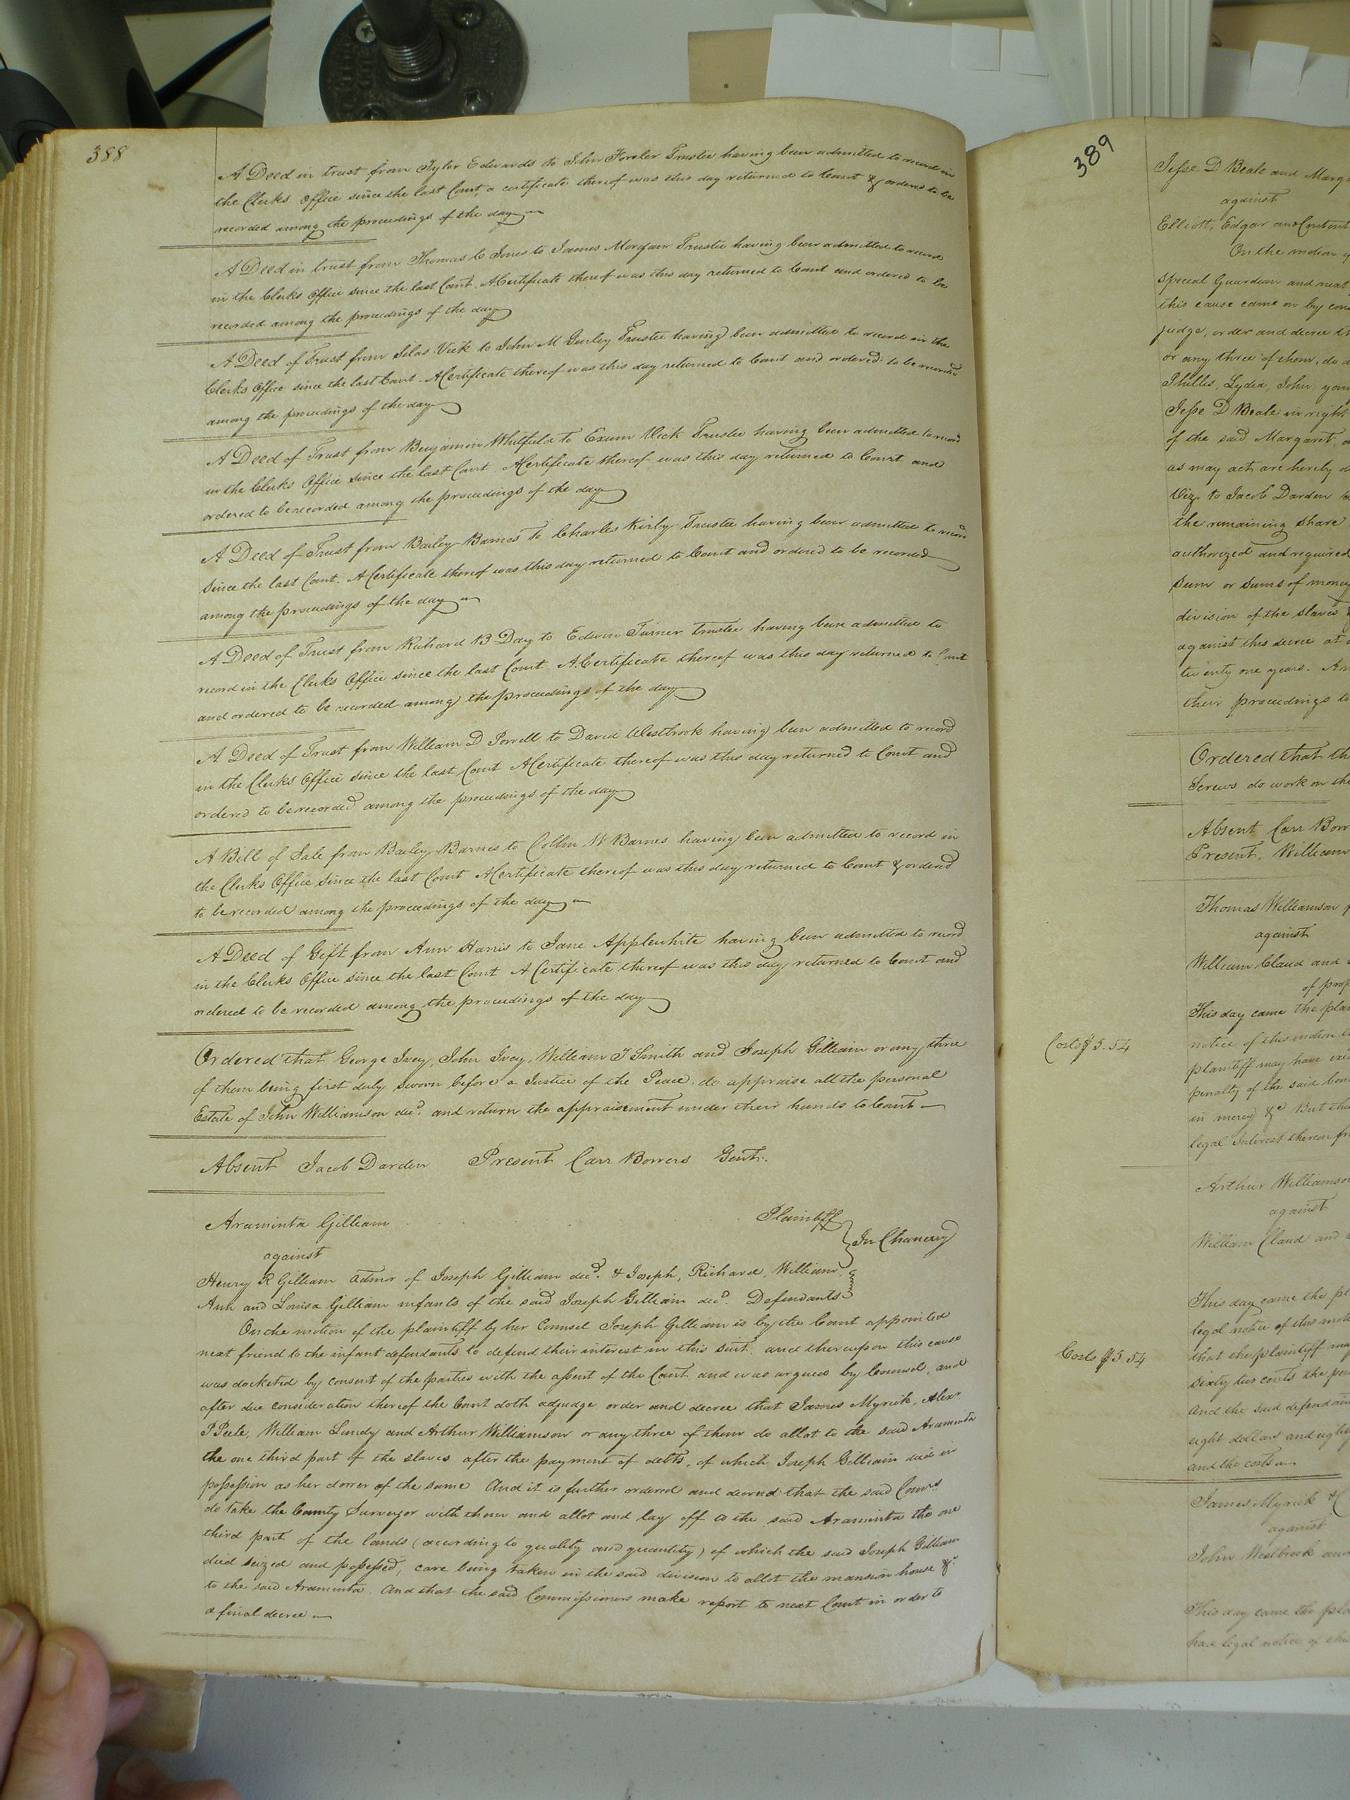 388
A Deed in trust from Tyler Edwards to John Fowler Trustee having been admitted to record in
the Clerks Office since the last Court a certificate thereof was this day returned to Court & ordered to be
recorded among the proceedings of the day
A Deed in trust from Thomas C Jones to James Morgan Trustee having been admitted to record
in the Clerks Office since the last Court. A Certificate thereof was this day returned to Court and ordered to be
recorded among the proceedings of the day
A Deed of Trust from Silas Vick to John M Gurley Trustee having been admitted to record in the
Clerks Office since the last Court. A Certificate thereof was this day returned to Court and ordered to be recorded
among the proceedings of the day
A Deed of Trust from Benjamin Whitfield to Exum Vick Trustee having been admitted to record
in the Clerks Office since the last Court A Certificate thereof was this day returned to Court and
ordered to be recorded among the proceedings of the day
A Deed of Trust from Bailey Barnes to Charles Kirby Trustee having been admitted to record
since the last Court. A Certificate thereof was this day returned to Court and ordered to be recorded
among the proceedings of the day
A Deed of Trust from Richard B Day to Edwin Turner trustee having been admitted to
record in the Clerks Office since the last Court. A Certificate thereof was this day returned to Court
and ordered to be recorded among the proceedings of the day
A Deed of Trust from William D Powell to David Westbrook having been admitted to record
in the Clerks Office since the last Court A Certificate thereof was this day returned to Court and
ordered to be recorded among the proceedings of the day
A Bill of Sale from Bailey Barnes to Collin W Barnes having been admitted to record in
the Clerks Office since the last Court A Certificate thereof was this day returned to Court & ordered
to be recorded among the proceedings of the day
A Deed of Gift from Ann Harris to Jane Applewhite having been admitted to record
in the Clerks Office since the last Court A Certificate thereof was this day returned to Court and
ordered to be recorded among the proceedings of the day
Ordered that George Ivey, John Ivey, William T Smith and Joseph Gilliam or any three
of them being first duly sworn before a Justice of the Peace do appraise all the personal
Estate of John Williamson decd. and return the appraisement under their hands to Court
Absent Jacob Darden Present Carr Bowers Gent.
Araminta Gilliam Plaintiff
against In Chancery
Henry R Gilliam admr of Joseph Gilliam decd. & Joseph, Richard, William
Ann and Louisa Gilliam infants of the said Joseph Gilliam decd. Defendants
On the motion of the plaintiff by her Counsel Joseph Gilliam is by the Court appointed
next friend to the infant defendants to defend their interest in this suit. and thereupon this cause
was docketed by consent of the parties with the assent of the Court and was argued by Counsel, and
after due consideration thereof the Court doth adjudge order and decree that James Myrick, Alexr
P Peete, William Lundy and Arthur Williamson or any three of them do allot to the said Araminta
the one third part of the slaves after the payment of debts, of which Joseph Gilliam died in
possession as her dower of the same And it is further ordered and decreed that the said Comrs
do take the County Surveyor with them and allot and lay off to the said Araminta the one
third part of the lands (according to quality and quantity) of which the said Joseph Gilliam
died seized and possessed, care being taken in the said division to allot the mansion house &c
to the said Araminta. And that the said Commissioners make report to next Court in order to
a final decree
389
Jesse D Beale and
against
Elliott, Edgar and
On the motion
special Guardian and next
this cause came on by
judge, order and decree
or any three of them, do
Phillis, Lydia, John,
Jesse D Beale in right
of the said Margaret,
as may act are hereby
Viz. to Jacob Darden
the remaining share
authorized and required
sum or sums of money
division of the slaves
against this decree at
twenty one years.
their proceedings to
Ordered that
Screws do work on
Absent Carr
Present, William
Thomas Williamson
against
William Claud and
of
This day came the
notice of this motion
Costs $5.54
plaintiff may have
penalty of the said
in mercy &c But
legal Interest thereon
Arthur Williamson
against
William Claud and
This day came the
legal notice of this
that the plaintiff may
Costs $5.54
sixty two cents the
And the said
eight dollars and
and the costs
James Myrick &
against
John Westbrook and
This day came the
had legal notice of